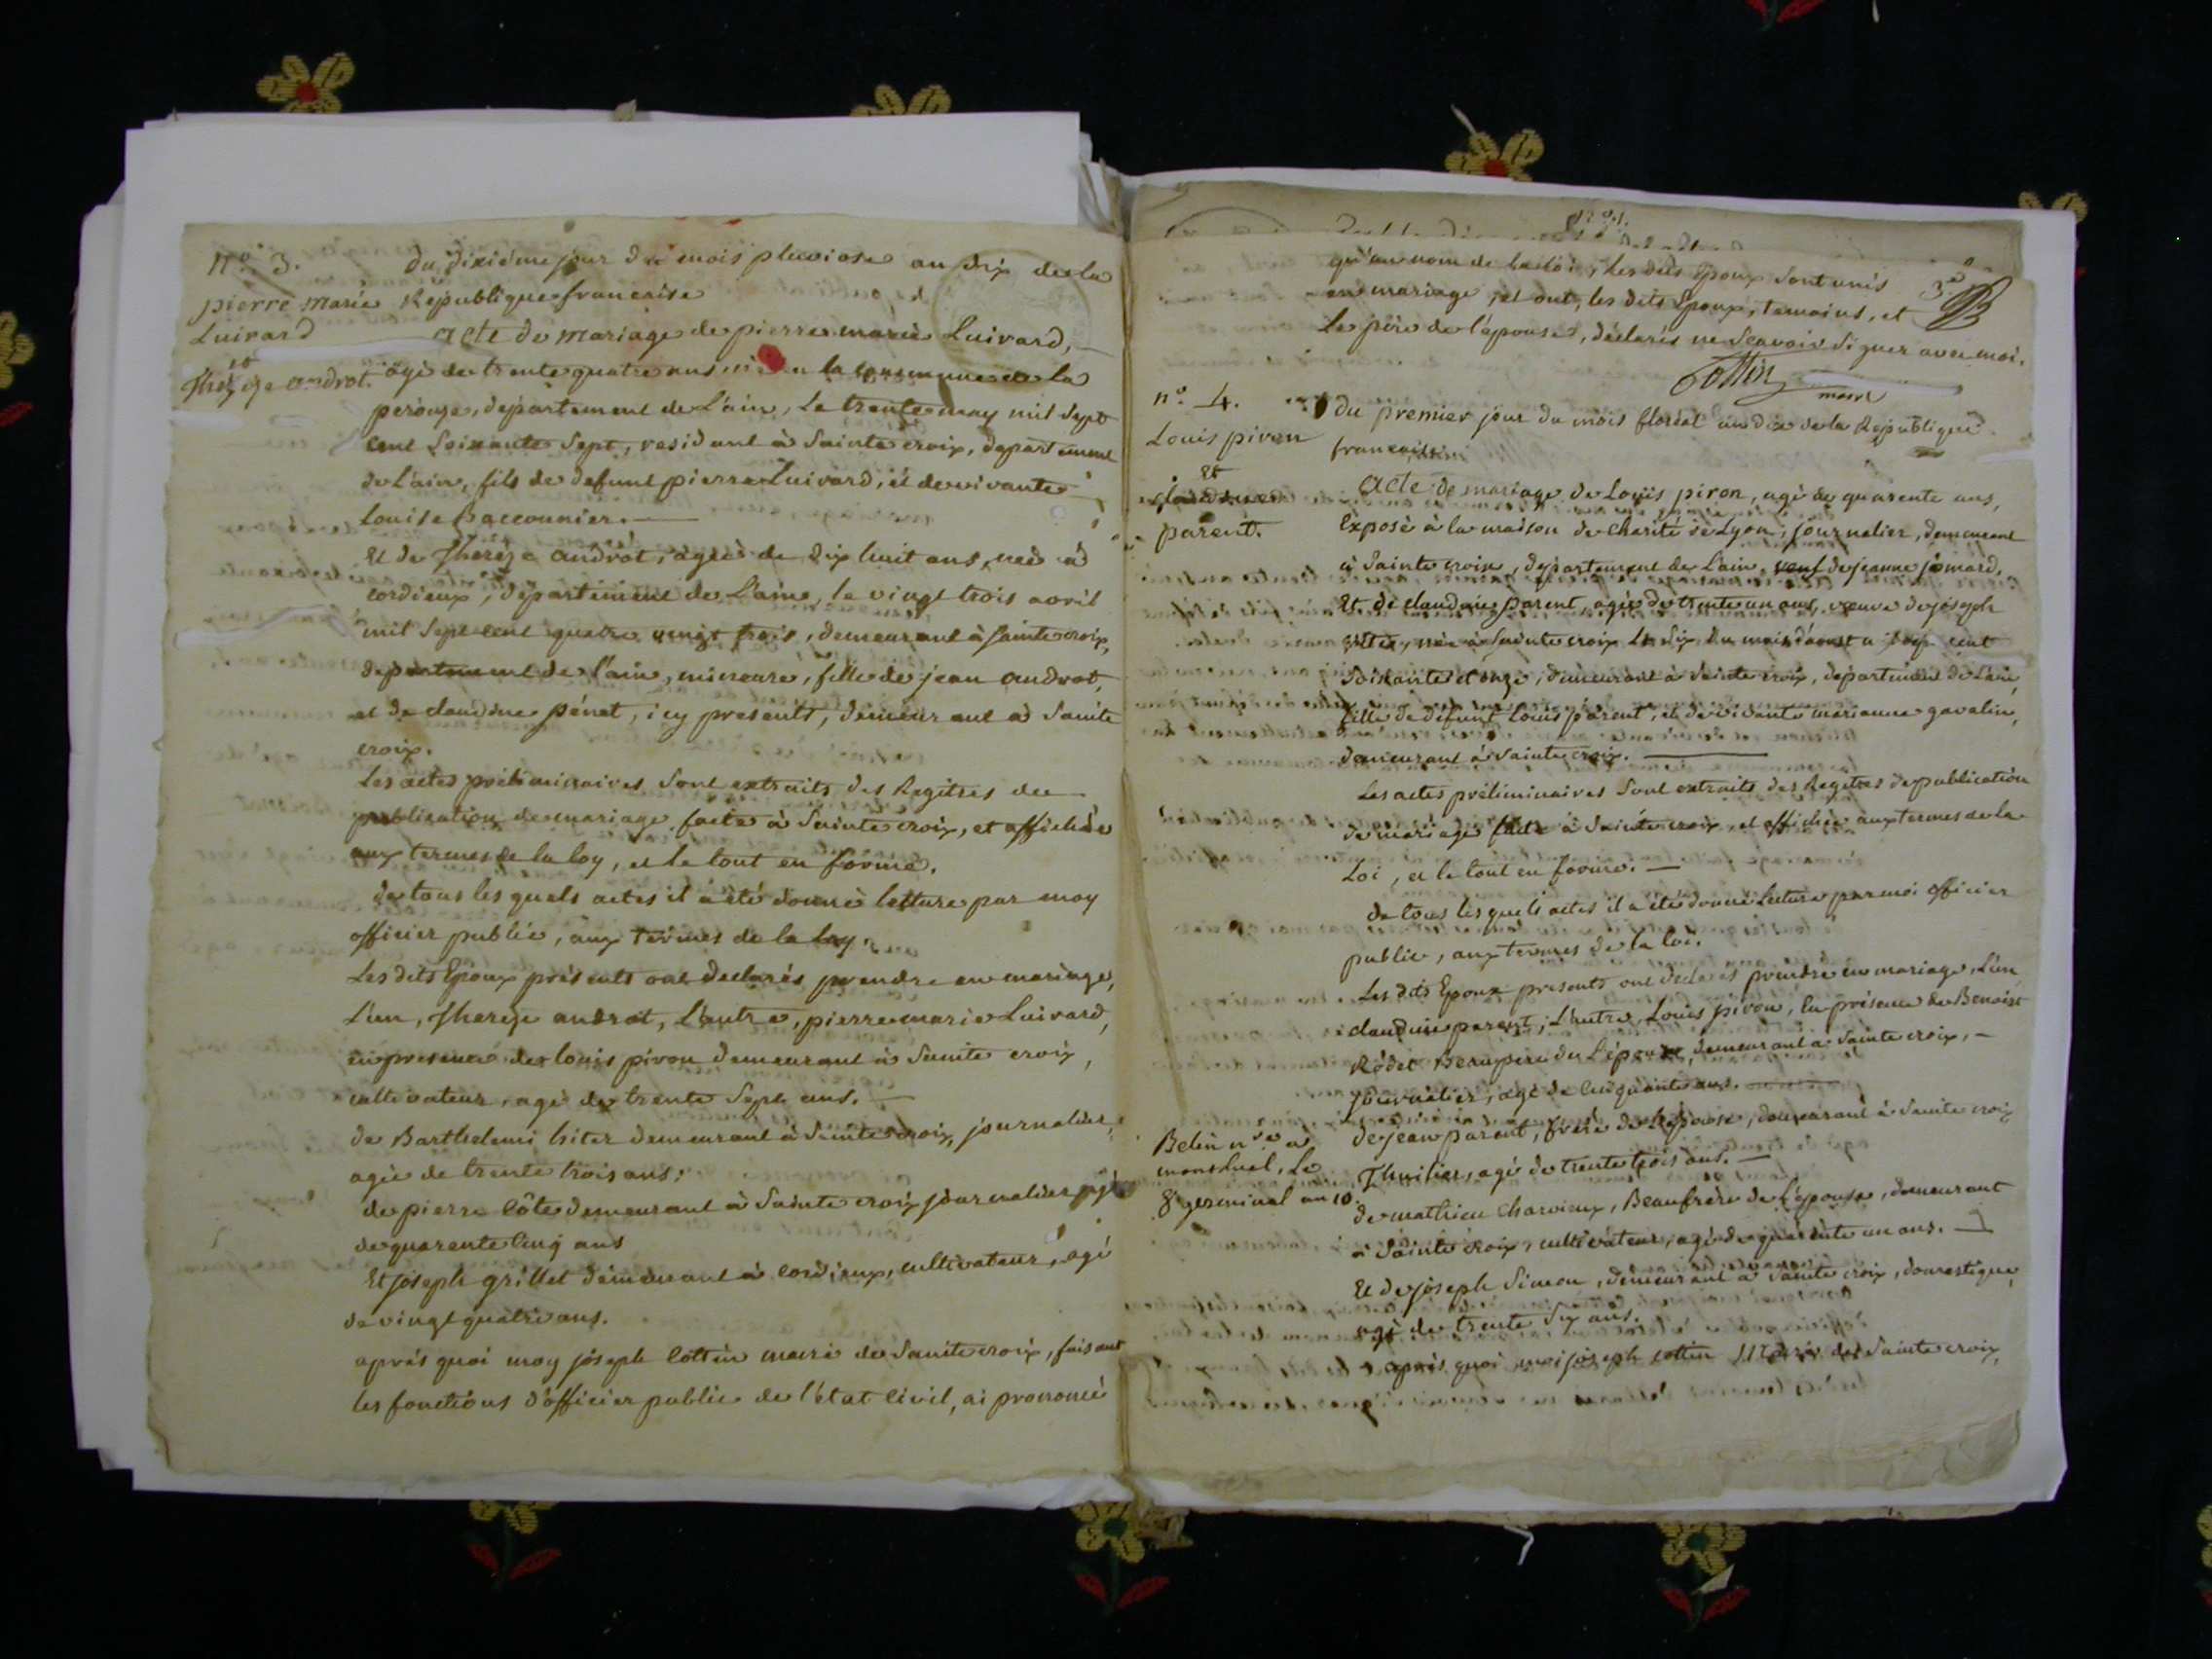 n.° 3.
pierre marie
Luivard
et
Thereze androt.
du dixiéme jour du mois pluviose an dix de la
République francaise
acte de mariage de pierre marie Luivard,
agé de trente quatre ans, la commune de la
perouze, departement de L'ain, le trente may mil sept
cent soixante sept, residant à Sainte croix, departement
de L'ain, fils de defunt pierre Luivard, et de vivante
Louise Baccounier.
Et de Thereze androt, agée de dix huit ans, née à
cordieux, département de L'ain, le vingt trois avril
mil sept cent quatre vingt trois, demeurant à Sainte croix,
departement de l'ain, mineure, fille de jean androt,
et de claudine pénet, icy presents, demeurant à Sainte
croix.
Les actes préliminaires sont extraits des Regitres de
publication de mariage faite à Sainte croix, et affichée
aux termes de la loy, et le tout en forme.
de tous les quels actes il a été donné lecture par moy
officier public, aux termes de la loy.
Les dits Epoux présents ont declarés prendre en mariage,
L'un, Thereze androt, L'autre, pierre marie Luivard,
en presence de louis piron demeurant à Sainte croix,
cultivateur, agé de trente sept ans.
de Barthelemi hiter demeurant à Sainte croix, journalier,
agée de trente trois ans;
de pierre Côte demeurant à Sainte croix journalier, agé
de quarente cinq ans
Et joseph grillet demeurant à cordieux, cultivateur, agé
de vingt quatre ans.
aprés quoi moy joseph Cottin maire de Sainte croix, faisant
les fonctions d'officier public de l'état civil, ai prononcé
qu'au nom de la loi, les dits époux sont unis
en mariage, et ont, les dits Epoux, temoins, et
Le pére de l'épouse, déclarés ne Sçavoir Signer avec moi.
3e
Cottin
maire
n.° 4.
Louis piron
et
claudine
parent.
du premier jour du mois floréal an dix de la République
francaise
Acte de mariage de Loüis piron, agé de quarente ans,
Exposé à la maison de Charité de Lyon, journalier, demeurant
à Sainte croix, département de L'ain, veuf de jeanne jomard,
Et de claudine parent, agée de trente un ans, veuve de joseph
née à Sainte croix le dix du mois d'aoust sept cent
Soixante et onze, demeurant à Sainte croix, département de L'ain,
fille de défunt Louis parent, et de vivante marianne gavalin,
demeurant à Sainte croix.
Les actes préliminaires sont extraits des Regitres de publication
de mariage faite à Sainte croix, et affichée aux termes de la
Loi, et le tout en forme.
de tous les quels actes il a été donné Lecture par moi officier
public, aux termes de la loi.
Les dits Epoux presents ont declarés prendre en mariage, L'un
claudine parent, L'autre, Louis piron, En présence de Benoist
Rodet Beaupere de L'épouse, demeurant à Sainte croix,
journalier, agé de cinquante ans.
de jean parent, frére de L'épouse, demeurant à Sainte croix
Thuilier, agé de trente trois ans.
Belin
montluel, Le
8 germinal an 10.
de mathieu Charvieux, Beaufrére de L'epouse, demeurant
à Sainte croix, cultivateur, agé de quarente un ans.
Et de joseph Simon, demeurant à Sainte croix, domestique,
agé de trente six ans.
aprés quoi moi joseph cottin Maire de Sainte croix,